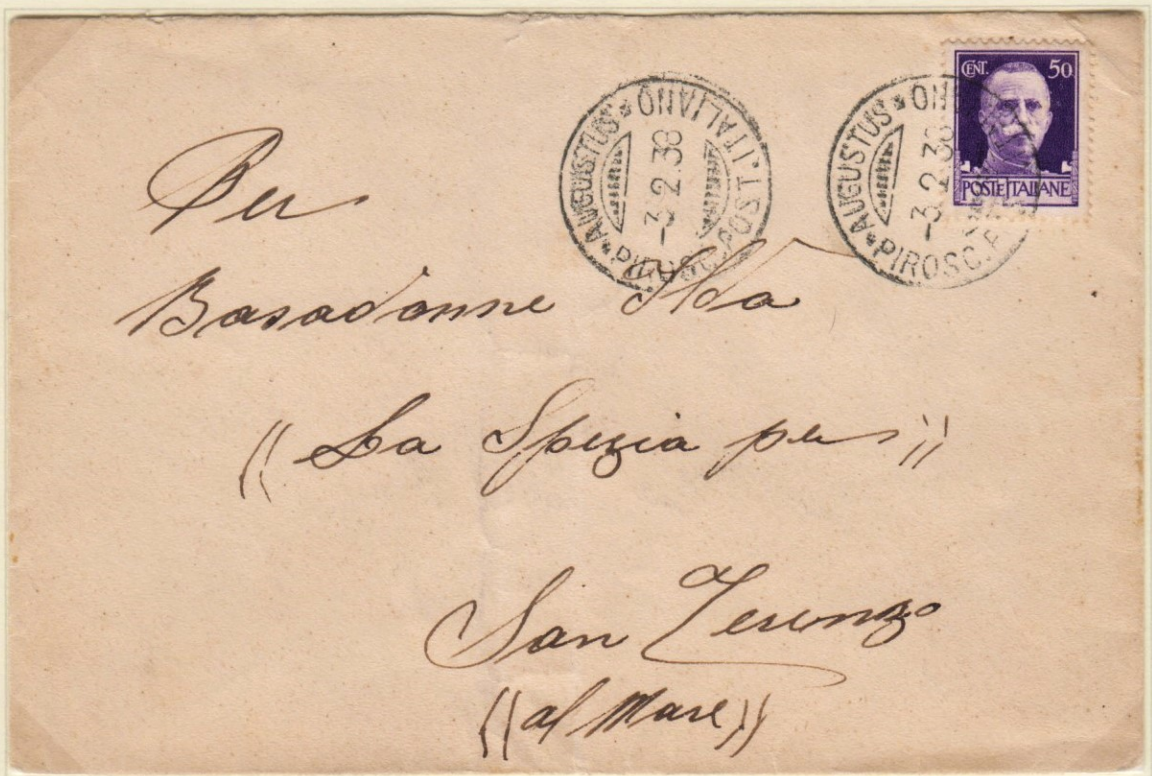 CENT. 50
POSTE ITALIANE
* AUGUSTUS * PIROSC. POST. ITALIANO
3.2.38
* AUGUSTUS * PIROSC.
3.2.38
Per
Basadonne Ilda
(( La Spezia per ))
San Terenzo
((al Mare))